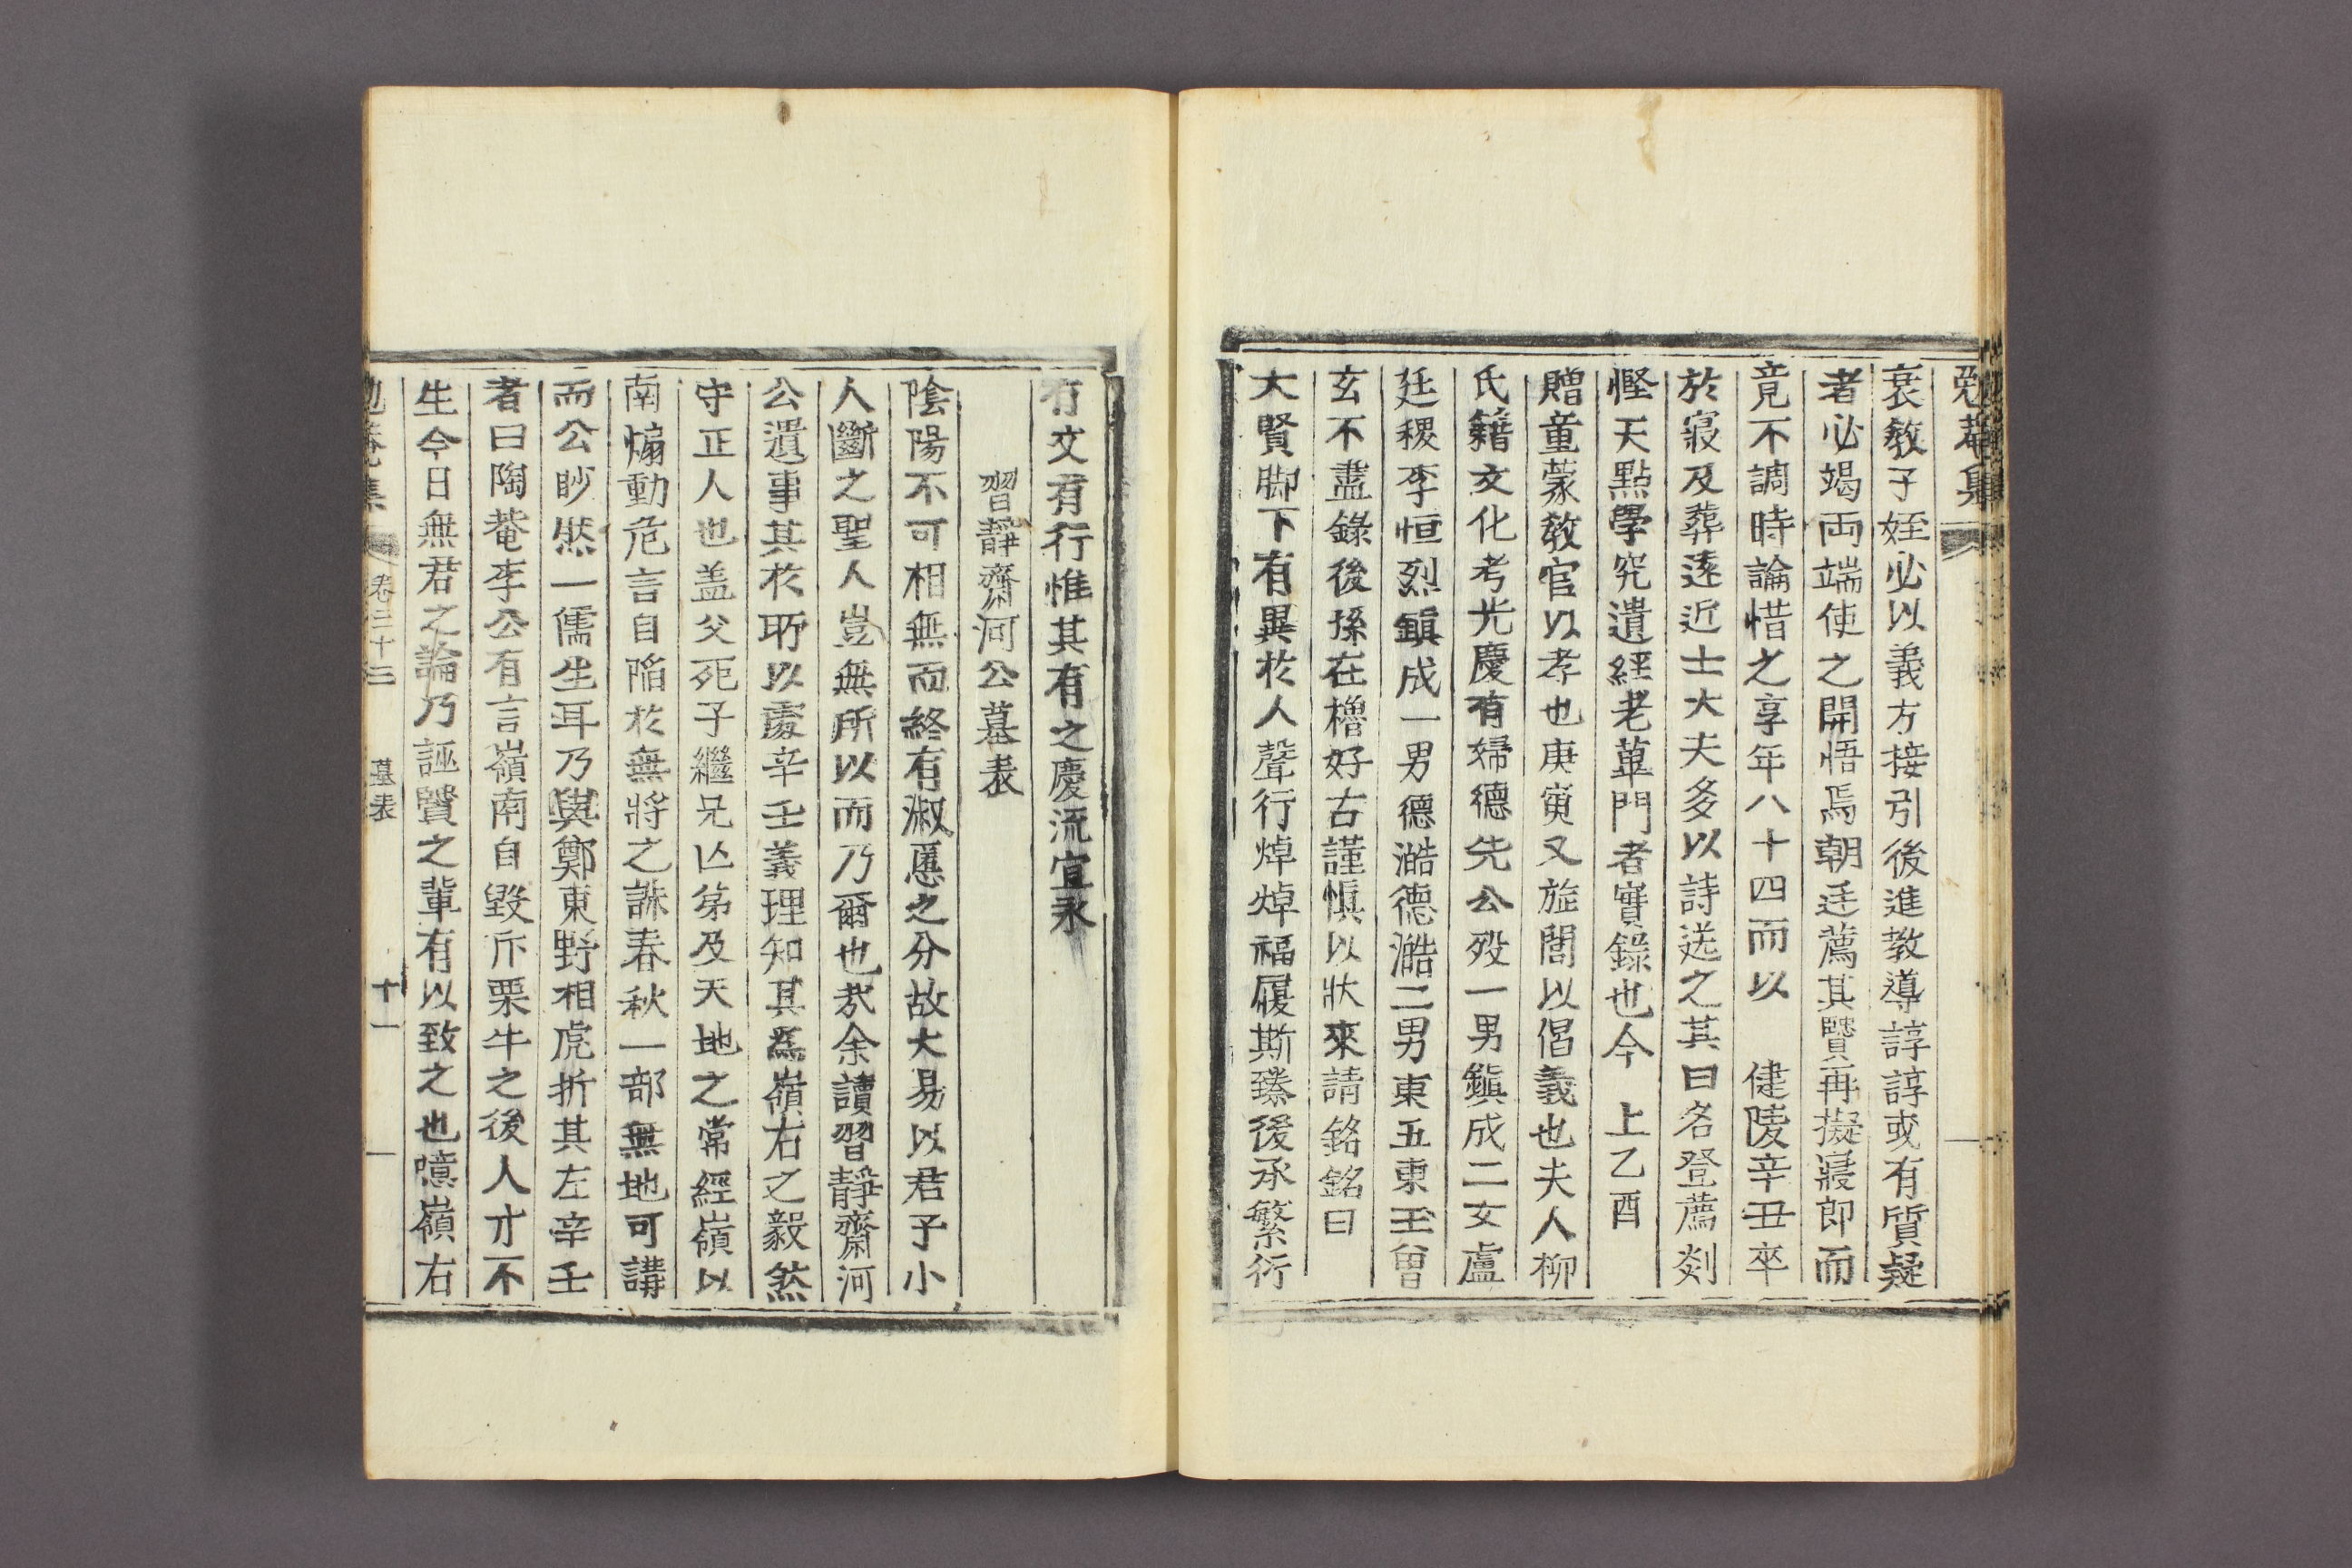 勉菴集
衰敎子姪必以義方接引後進敎導諄諄或有質疑
者必竭両端使之開悟焉朝廷薦其賢再擬寢郎而
竟不調時論惜之享年八十四而以　健陵辛丑卒
於寢及葬遠近士大夫多以詩送之其曰名登薦剡
慳天點學究遺經老蓽門者實錄也今　上乙酉
贈童蒙敎官以孝也庚寅又㫌閭以倡義也夫人柳
氏籍文化考光慶有婦德先公歿一男鎭成二女盧
廷稷李恒烈鎭成一男德澔德澔二男東五東玉曾
玄不盡錄後孫在櫓好古謹愼以狀來請銘銘曰
大賢脚下有異於人聲行焯焯福履斯臻後承繁衍
冇文有行惟其有之慶流宜永
習靜齋河公墓表
陰陽不可相無而終有淑慝之分故大易以君子小
人斷之聖人豈無所以而乃爾也㢤余讀習靜齋河
公遺事其於所以處辛壬義理知其爲嶺右之毅然
守正人也盖父死子繼兄亾弟及天地之常經嶺以
南煽動危言自陷於無將之誅春秋一部無地可講
而公眇然一儒生耳乃與鄭東野相虎折其左辛壬
者曰陶菴李公有言嶺南自毀斥栗牛之後人才不
生今日無君之論乃誣賢之輩有以致之也噫嶺右
勉菴集　卷三十三　墓表　十一